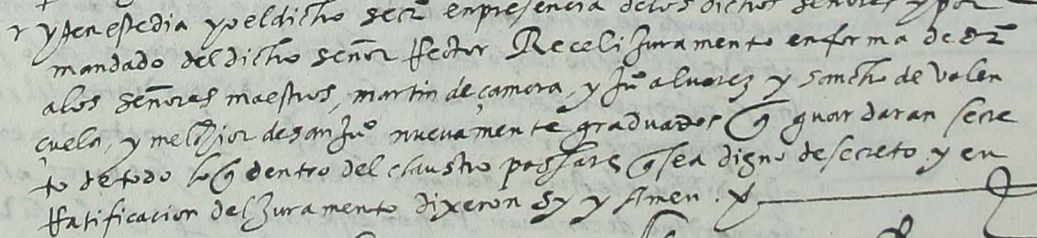 r y ten este dia yo el dicho secrº en presencia de los dichos señores y por
mandado del dicho señor Rector Recebi Juramento en forma de drº
a los señores maestros, martin de çamora, y Juº alvarez y sancho de valen
çuela, y melchior de san Juº nuevamente graduados q guardaran secre
to de todo lo q dentro del claustro passare q sea digno de secreto. y en
Ratificacion del Juramento dixeron sy y Amen.